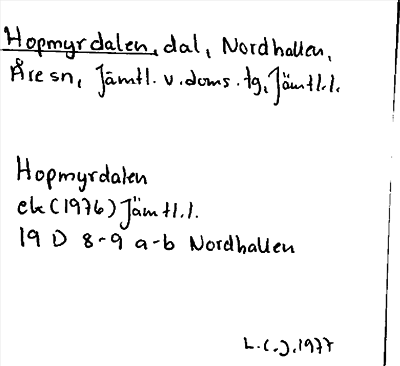 Hopmyrdalen, dal, Nordhallen,
Åre sn, Jämtl. v. doms. tg, Jämtl.l.
Hopmyrdalen
ek (1976) Jämtl.l.
19 D 8-9 a-b Nordhallen
L.C.J. 1977